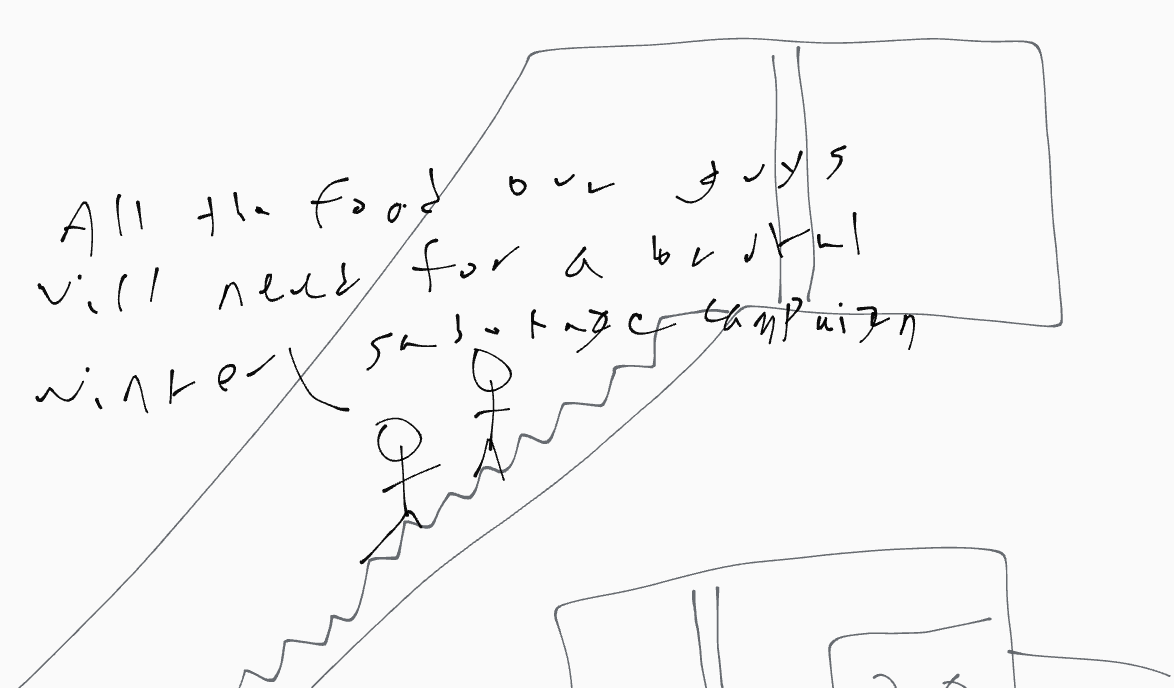 All the food our guys
will need for a brutal
winter sabotage campaign